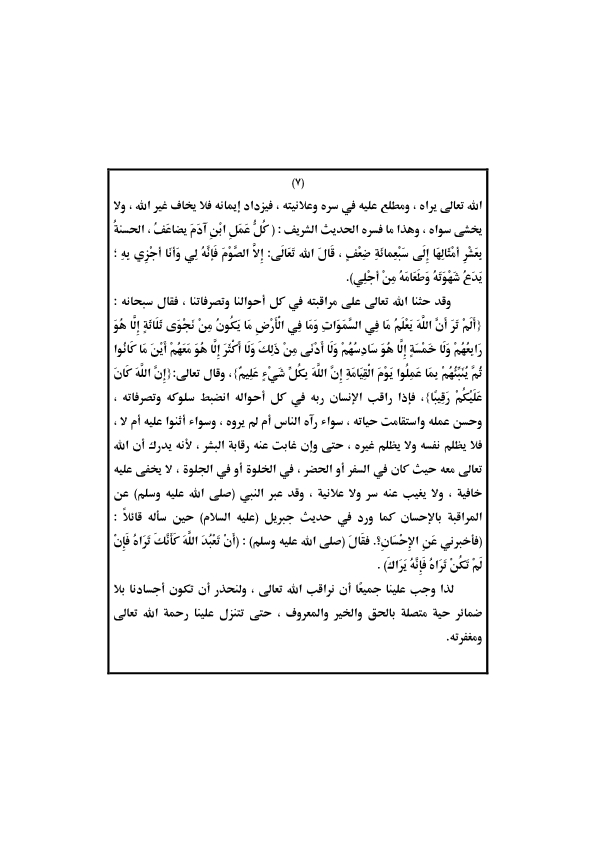 (٧)
الله تعالى يراه ، ومطلع عليه في سره وعلانيته ، فيزداد إيمانه فلا يخاف غير الله ، ولا
يخشى سواه ، وهذا ما فسره الحديث الشريف : ( كُلُّ عَمَلِ ابْنِ آدَمَ يضاعَفُ ، الحسنةُ
بِعَشْرِ أَمْثَالِهَا إِلَى سَبْعِمائَةِ ضِعْفٍ ، قَالَ الله تَعَالَى: إِلاَّ الصَّوْمَ فَإِنَّهُ لِي وَأنَا أجْزِي بِهِ ؛
يَدَعُ شَهْوَتَهُ وَطَعَامَهُ مِنْ أجْلِي).
وقد حثنا الله تعالى على مراقبته في كل أحوالنا وتصرفاتنا ، فقال سبحانه :
{أَلَمْ تَرَ أَنَّ اللَّهَ يَعْلَمُ مَا فِي السَّمَوَاتِ وَمَا فِي الْأَرْضِ مَا يَكُونُ مِنْ نَجْوَى ثَلَاثَةٍ إِلَّا هُوَ
رَابِعُهُمْ وَلَا خَمْسَةٍ إِلَّا هُوَ سَادِسُهُمْ وَلَا أَدْنَى مِنْ ذَلِكَ وَلَا أَكْثَرَ إِلَّا هُوَ مَعَهُمْ أَيْنَ مَا كَانُوا
ثُمَّ يُنَبِّئُهُمْ بِمَا عَمِلُوا يَوْمَ الْقِيَامَةِ إِنَّ اللَّهَ بِكُلِّ شَيْءٍ عَلِيمٌ}، وقال تعالى:{إِنَّ اللَّهَ كَانَ
عَلَيْكُمْ رَقِيبًا}، فإذا راقب الإنسان ربه في كل أحواله انضبط سلوكه وتصرفاته ،
وحسن عمله واستقامت حياته ، سواء رآه الناس أم لم يروه ، وسواء أثنوا عليه أم لا ،
فلا يظلم نفسه ولا يظلم غيره ، حتى وإن غابت عنه رقابة البشر ، لأنه يدرك أن الله
تعالى معه حيث كان في السفر أو الحضر ، في الخلوة أو في الجلوة ، لا يخفى عليه
خافية ، ولا يغيب عنه سر ولا علانية ، وقد عبر النبي (صلى الله عليه وسلم) عن
المراقبة بالإحسان كما ورد في حديث جبريل (عليه السلام) حين سأله قائلاً :
(فأخبرني عَنِ الإِحْسَانِ؟. فقَالَ (صلى الله عليه وسلم) : (أَنْ تَعْبُدَ اللَّهَ كَأَنَّكَ تَرَاهُ فَإِنْ
لَمْ تَكُنْ تَرَاهُ فَإِنَّهُ يَرَاكَ) .
لذا وجب علينا جميعًا أن نراقب الله تعالى ، ولنحذر أن تكون أجسادنا بلا
ضمائر حية متصلة بالحق والخير والمعروف ، حتى تتنزل علينا رحمة الله تعالى
ومغفرته.